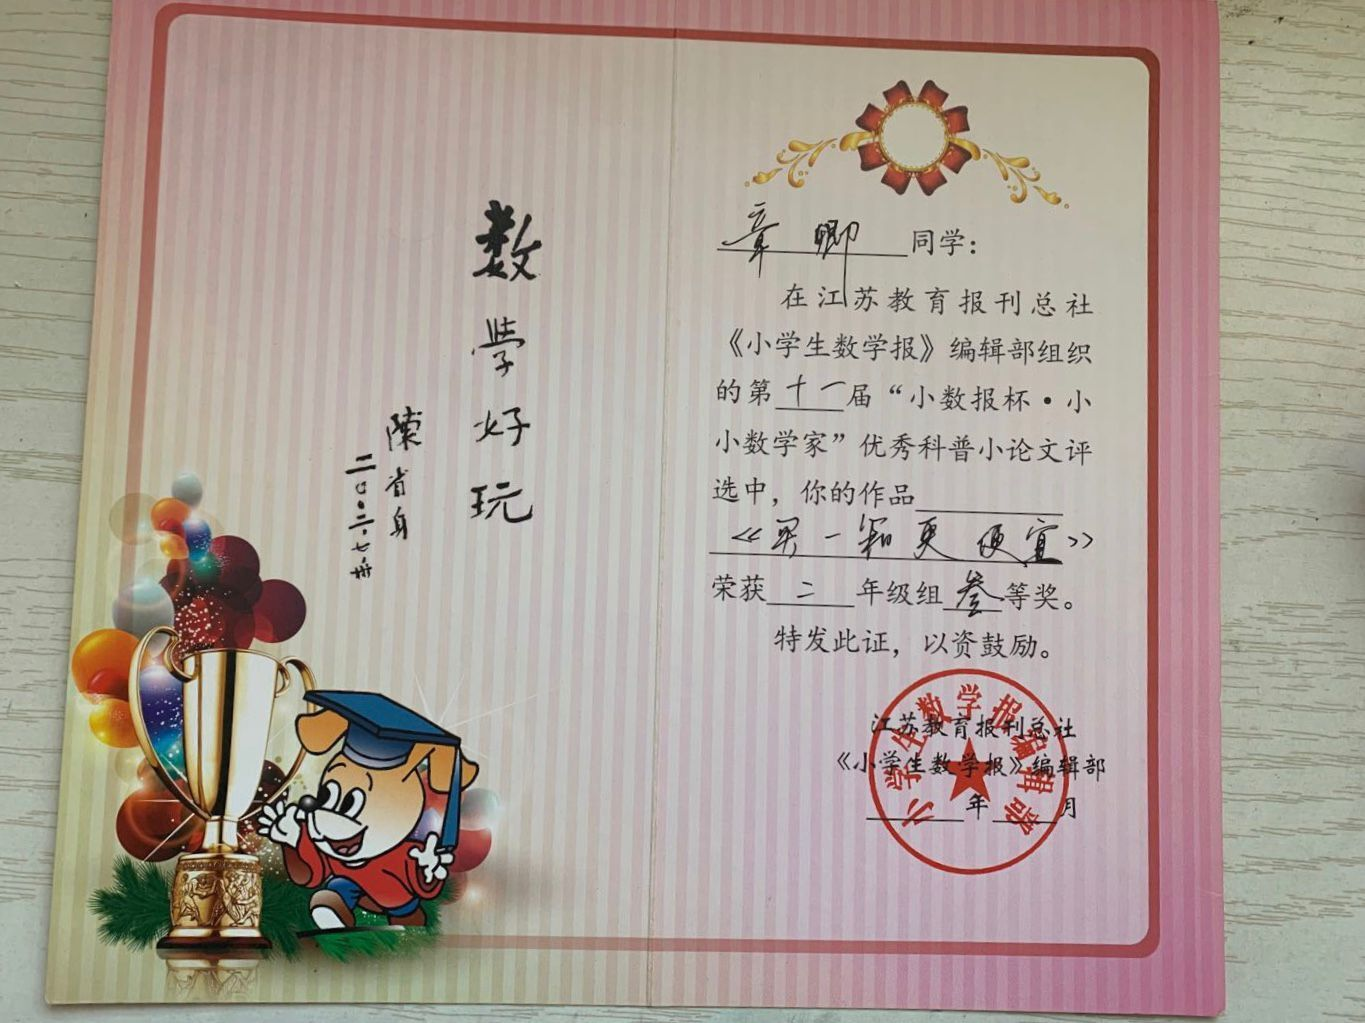 数学好玩
陳省身
二〇〇二.七.卅
章卿同学:
在江苏教育报刊总社
《小学生数学报》编辑部组织
的第十一届“小数报杯·小
小数学家”优秀科普小论文评
选中，你的作品
《买一箱更便宜》
荣获二年级组叁等奖。
特发此证，以资鼓励。
江苏教育报刊总社
《小学生数学报》编辑部
年 月
小学生数学报编辑部